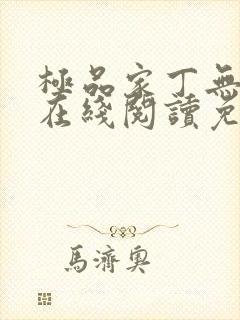 極品家丁無
在綫閱讀免
馬濟奧